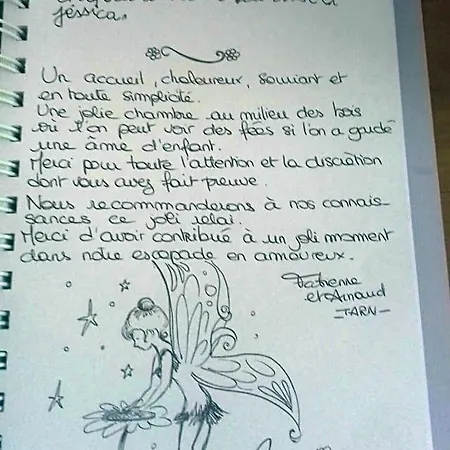 Jessica.
Un accueil, chaleureux, souriant et
en toute simplicité.
Une jolie chambre au milieu des bois
où l'on peut voir des fées si l'on a gardé
une âme d'enfant.
Merci pour toute l'attention et la discrétion
dont vous avez fait preuve.
Nous recommanderons à nos connais-
sances ce joli relai.
Merci d'avoir contribué à un joli moment
dans notre escapade en amoureux.
Fabienne
et Arnaud
-TARN-